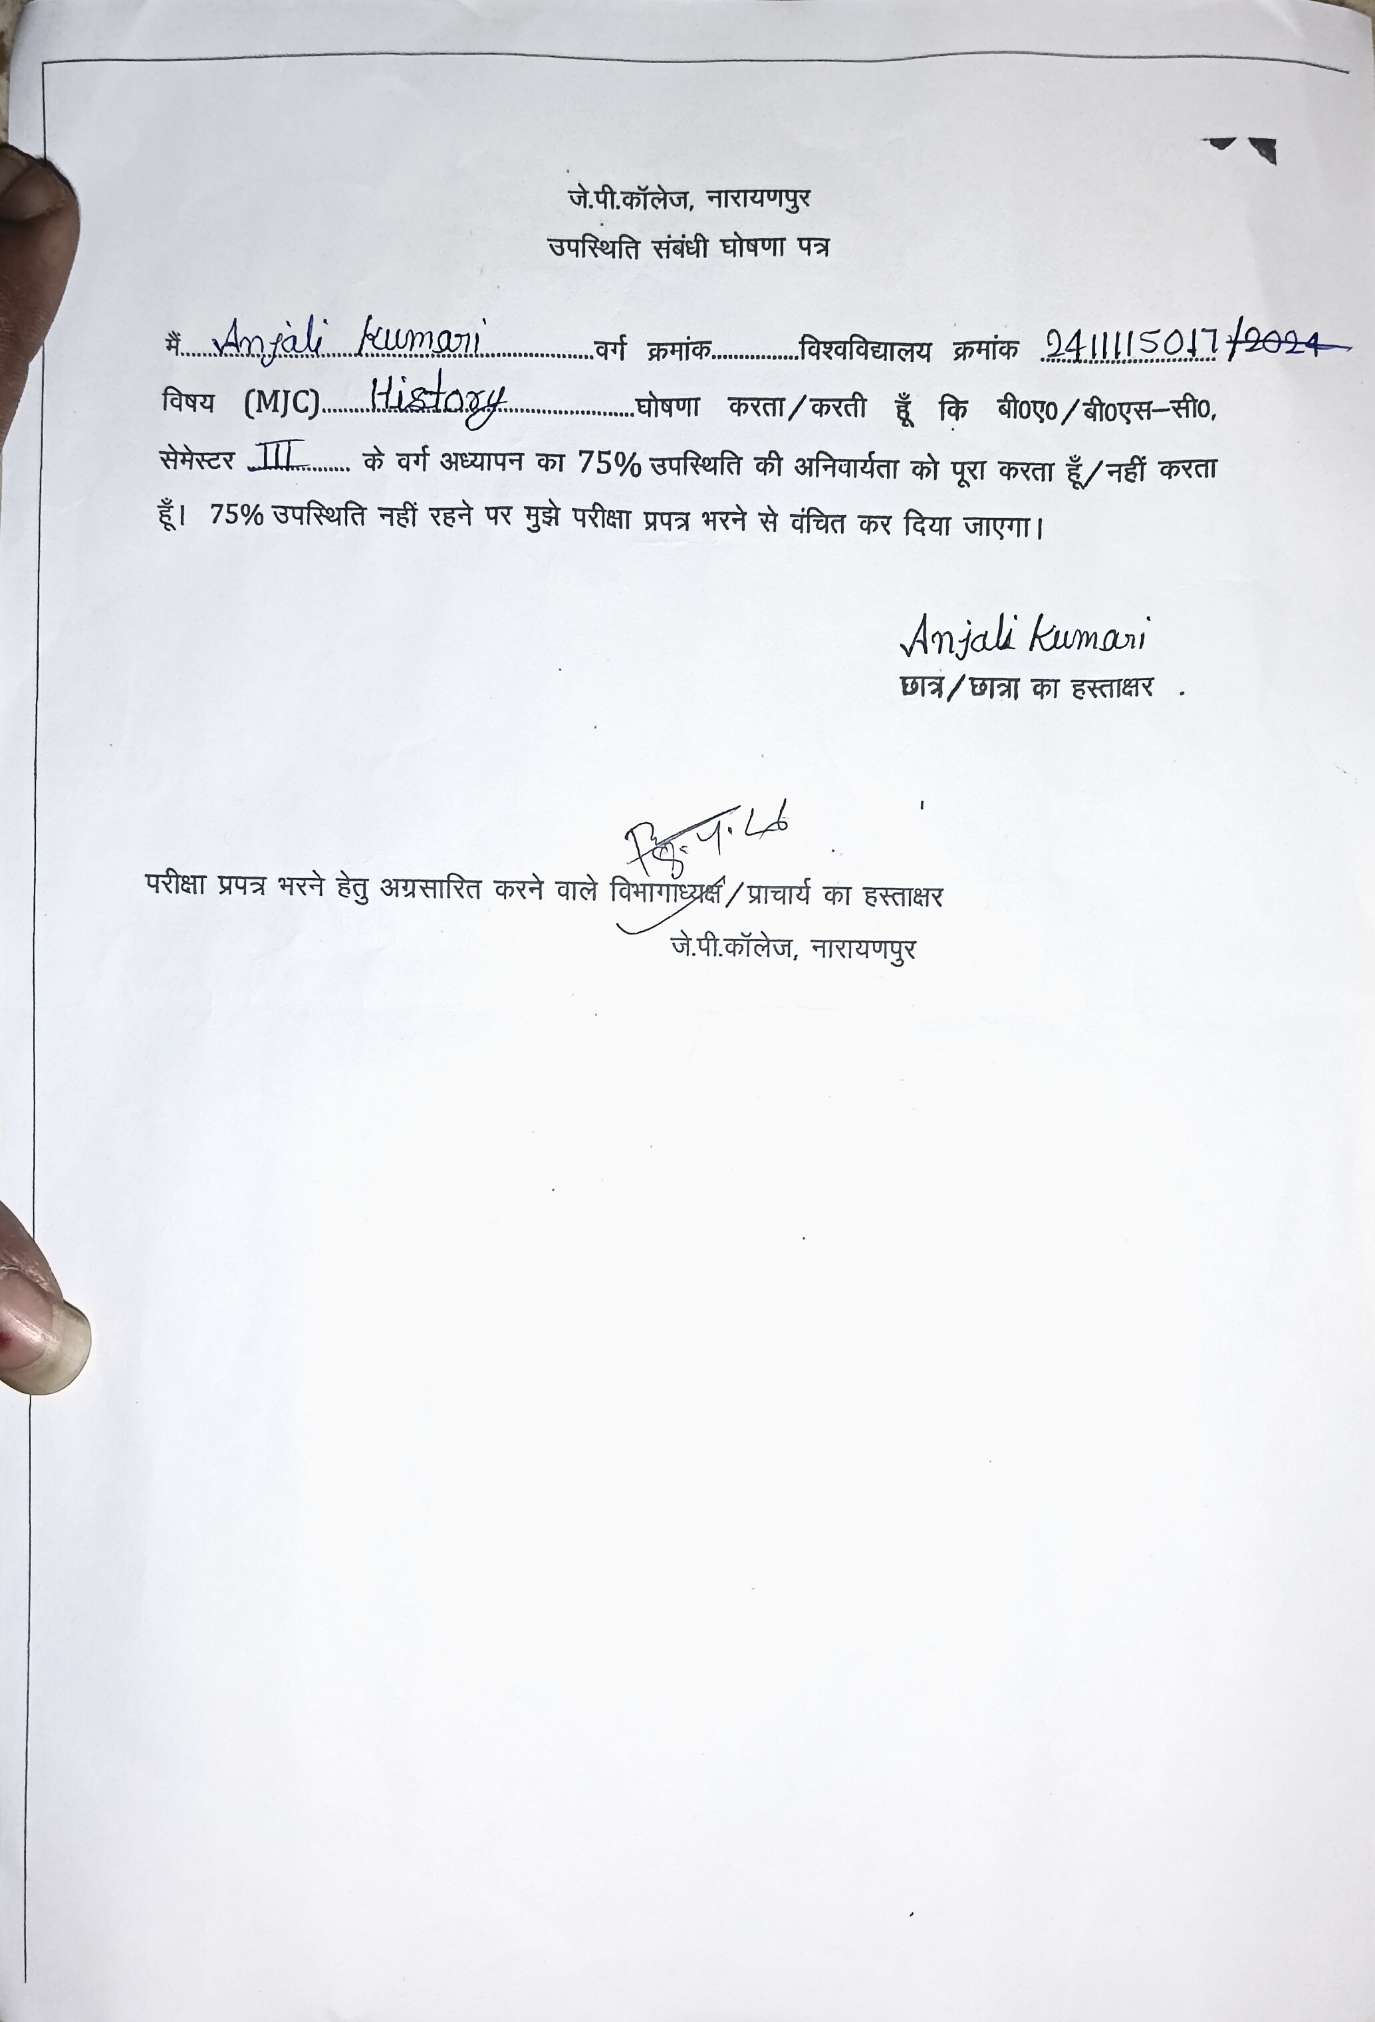 जे.पी.कॉलेज, नारायणपुर
उपस्थिति संबंधी घोषणा पत्र
मैं.....Anjali Kumari.....वर्ग क्रमांक................विश्वविद्यालय क्रमांक 2411115017/2024
विषय (MJC).....History.....घोषणा करता/करती हूँ कि बी०ए०/बी०एस–सी०,
सेमेस्टर ..III.. के वर्ग अध्यापन का 75% उपस्थिति की अनिवार्यता को पूरा करता हूँ/नहीं करता
हूँ। 75% उपस्थिति नहीं रहने पर मुझे परीक्षा प्रपत्र भरने से वंचित कर दिया जाएगा।
Anjali Kumari
छात्र/छात्रा का हस्ताक्षर
परीक्षा प्रपत्र भरने हेतु अग्रसारित करने वाले विभागाध्यक्ष/प्राचार्य का हस्ताक्षर
जे.पी.कॉलेज, नारायणपुर